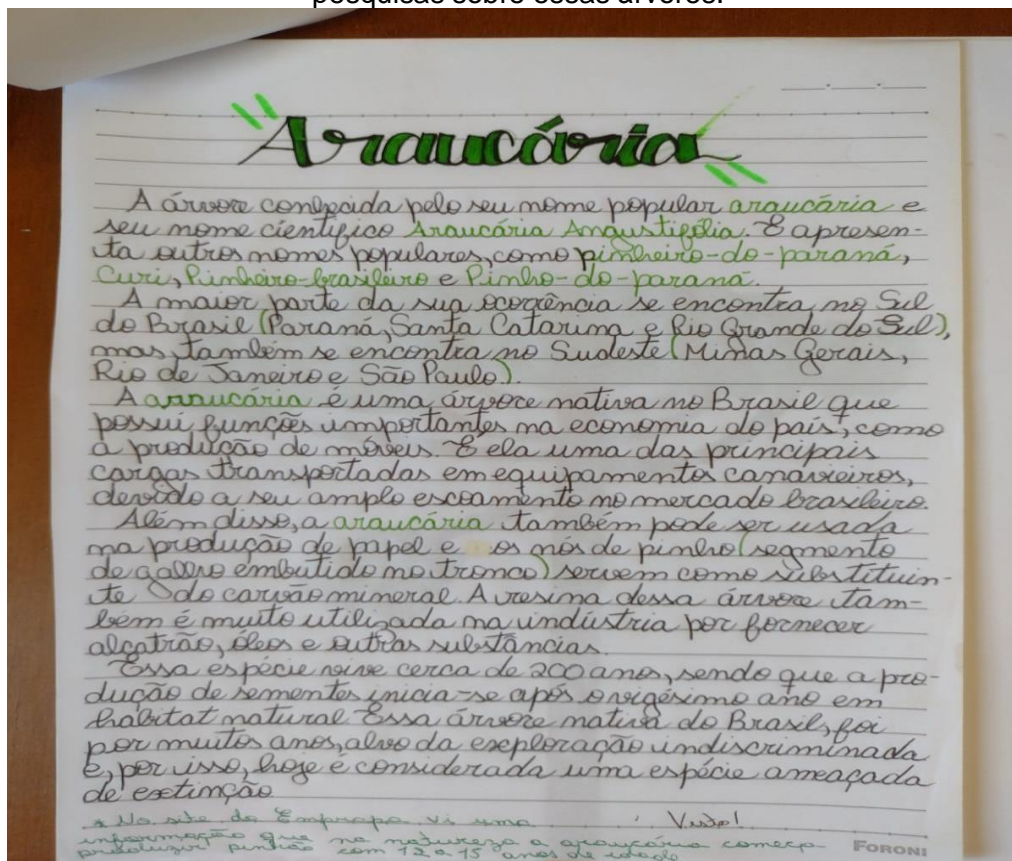 pesquisas sobre essas árvores.
"Araucária"
A árvore conhecida pelo seu nome popular araucária e
seu nome científico Araucária Angustifólia. E apresen-
ta outros nomes populares, como pinheiro-do-paraná,
Curi, Pinheiro-brasileiro e Pinho-do-paraná.
A maior parte da sua ocorrência se encontra no Sul
do Brasil (Paraná, Santa Catarina e Rio Grande do Sul),
mas também se encontra no Sudeste (Minas Gerais,
Rio de Janeiro e São Paulo).
A araucária é uma árvore nativa no Brasil que
possui funções importantes na economia do país, como
a produção de móveis. É ela uma das principais
cargas transportadas em equipamentos canavieiros,
devido a seu amplo escoamento no mercado brasileiro.
Além disso, a araucária também pode ser usada
na produção de papel e os nós de pinho (segmento
de galho embutido no tronco) servem como substituin-
te do carvão mineral. A resina dessa árvore tam-
bém é muito utilizada na indústria por fornecer
alcatrão, óleos e outras substâncias.
Essa espécie vive cerca de 200 anos, sendo que a pro-
dução de sementes inicia-se após o vigésimo ano em
habitat natural Essa árvore nativa do Brasil, foi
por muitos anos, alvo da exploração indiscriminada
e, por isso, hoje é considerada uma espécie ameaçada
de extinção
* No site da Emprapa vi uma Visto!
informação que na natureza a araucária começa
produzir pinhão com 12 a 15 anos de idade
FORONI